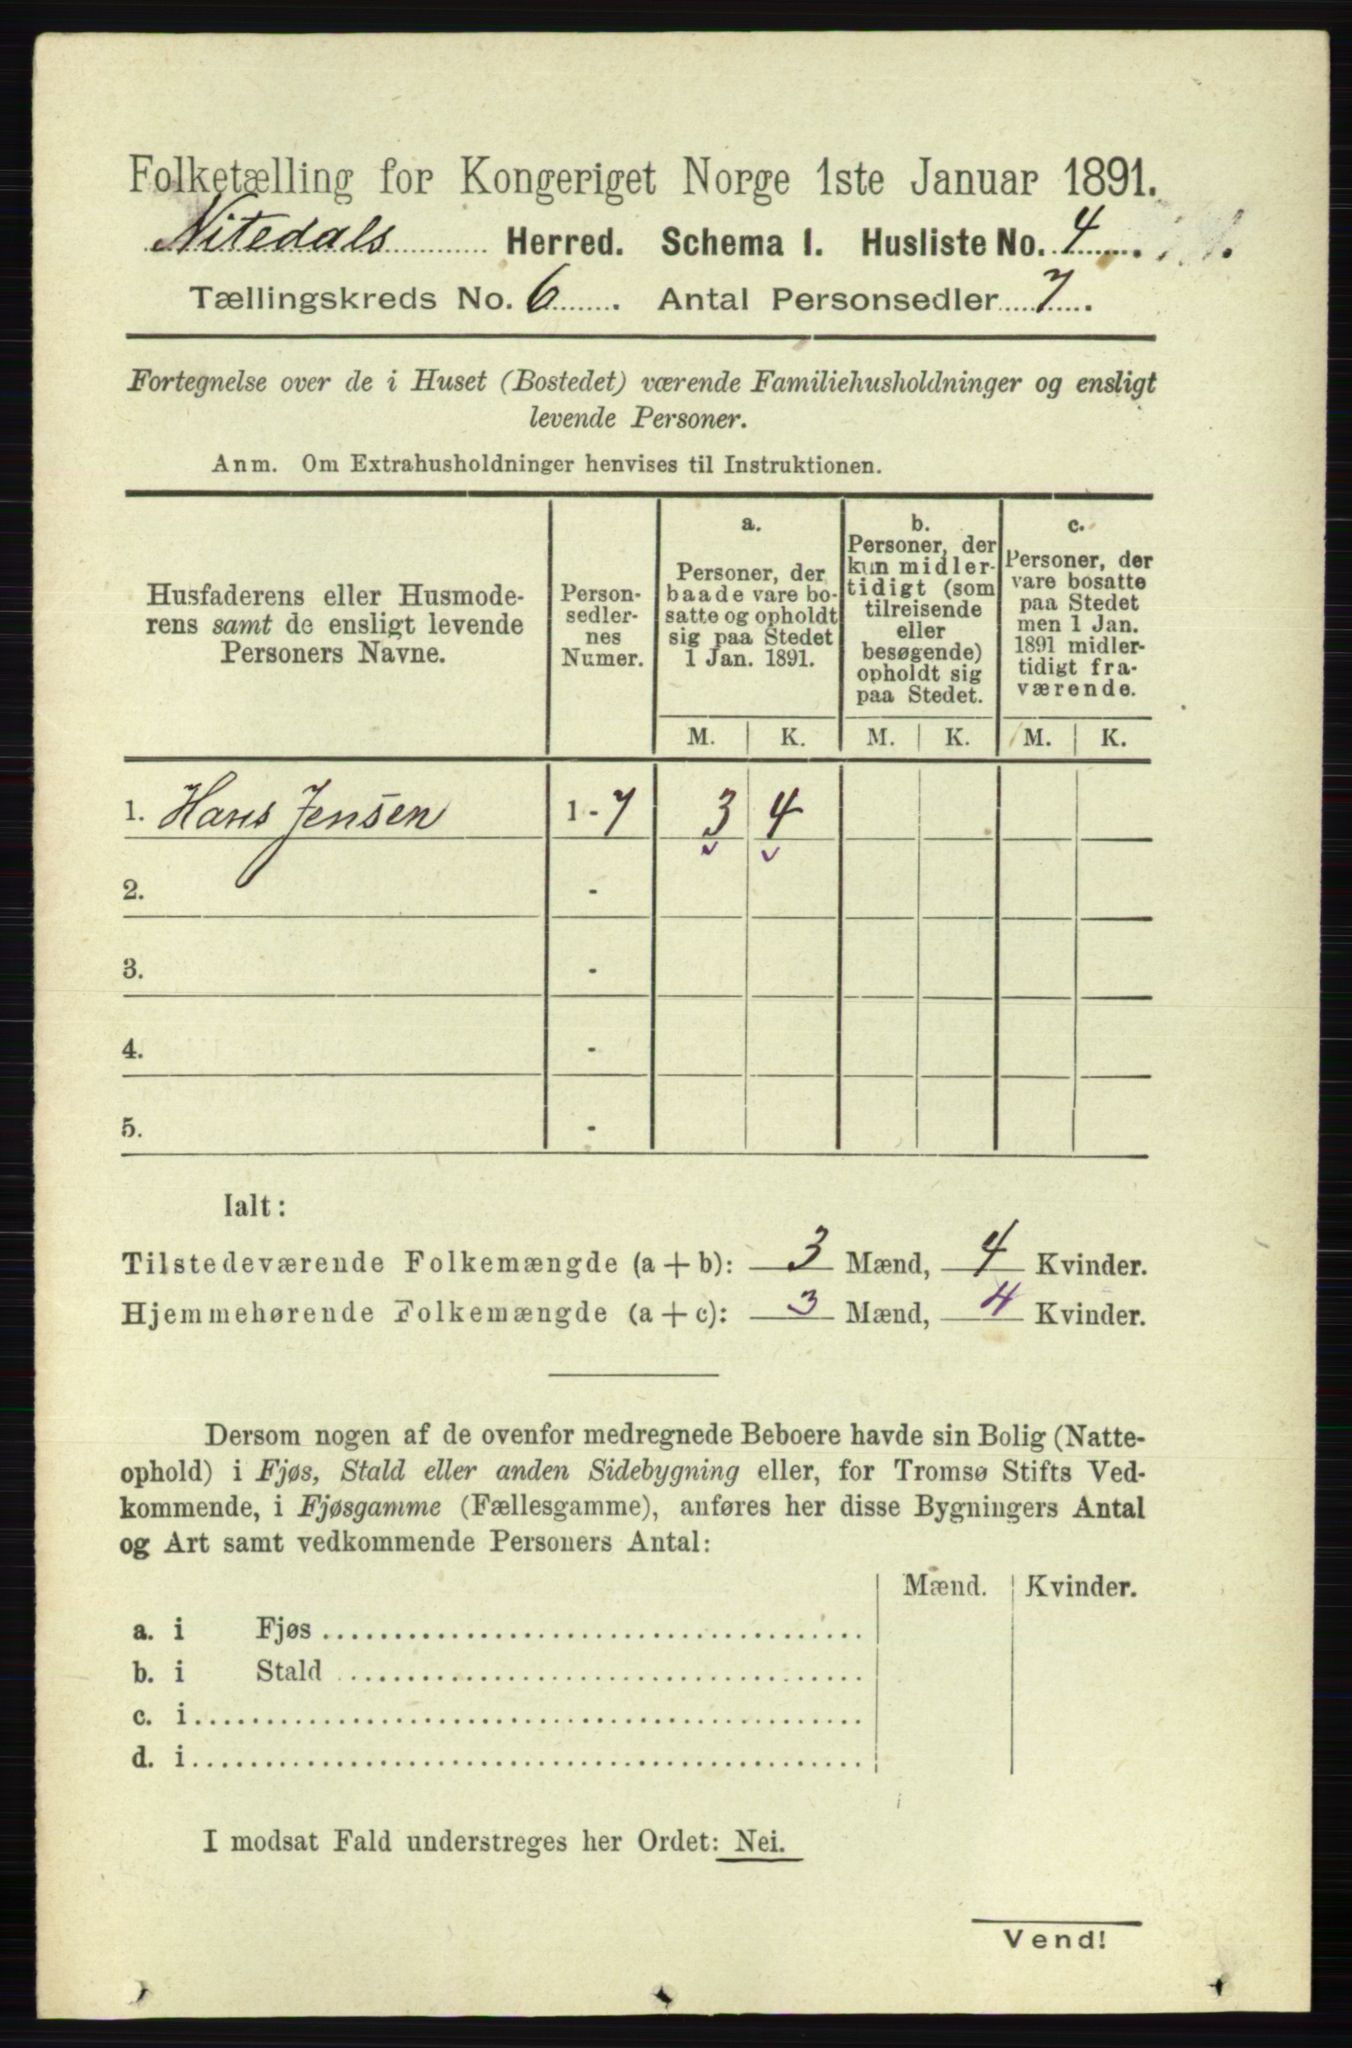 Folketælling for Kongeriget Norge 1ste Januar 1891.
Nitedals Herred. Schema 1. Husliste No. 4.
Tællingskreds No. 6. Antal Personsedler 7.
Fortegnelse over de i Huset (Bostedet) værende Familiehusholdninger og ensligt
levende Personer.
Anm. Om Extrahusholdninger henvises til Instruktionen.
Husfaderens eller Husmode-
rens samt de ensligt levende
Personers Navne.
Person-
sedler-
nes
Numer.
a.
Personer, der
baade vare bo-
satte og opholdt
sig paa Stedet
1 Jan. 1891.
b.
Personer, der
kun midler-
tidigt (som
tilreisende
eller
besøgende)
opholdt sig
paa Stedet.
c.
Personer, der
vare bosatte
paa Stedet
men 1 Jan.
1891 midler-
tidigt fra-
værende.
M. K. M. K. M. K.
1. Hans Jensen 1-7 3 4
2. -
3. -
4. -
5. -
Ialt:
Tilstedeværende Folkemængde (a+b): 3 Mænd, 4 Kvinder.
Hjemmehørende Folkemængde (a+c): 3 Mænd, 4 Kvinder.
Dersom nogen af de ovenfor medregnede Beboere havde sin Bolig (Natte-
ophold) i Fjøs, Stald eller anden Sidebygning eller, for Tromsø Stifts Ved-
kommende, i Fjøsgamme (Fællesgamme), anføres her disse Bygningers Antal
og Art samt vedkommende Personers Antal:
Mænd. Kvinder.
a. i Fjøs
b. i Stald
c. i
d. i
I modsat Fald understreges her Ordet: Nei.
Vend!